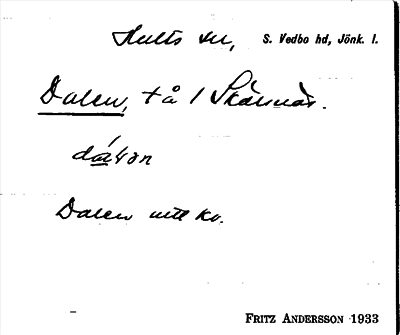 Hults sn, S. Vedbo hd, Jönk. l.
Dalen, t å 1 Skärsnäs.
Dalen nitt kv.
FRITZ ANDERSSON 1933